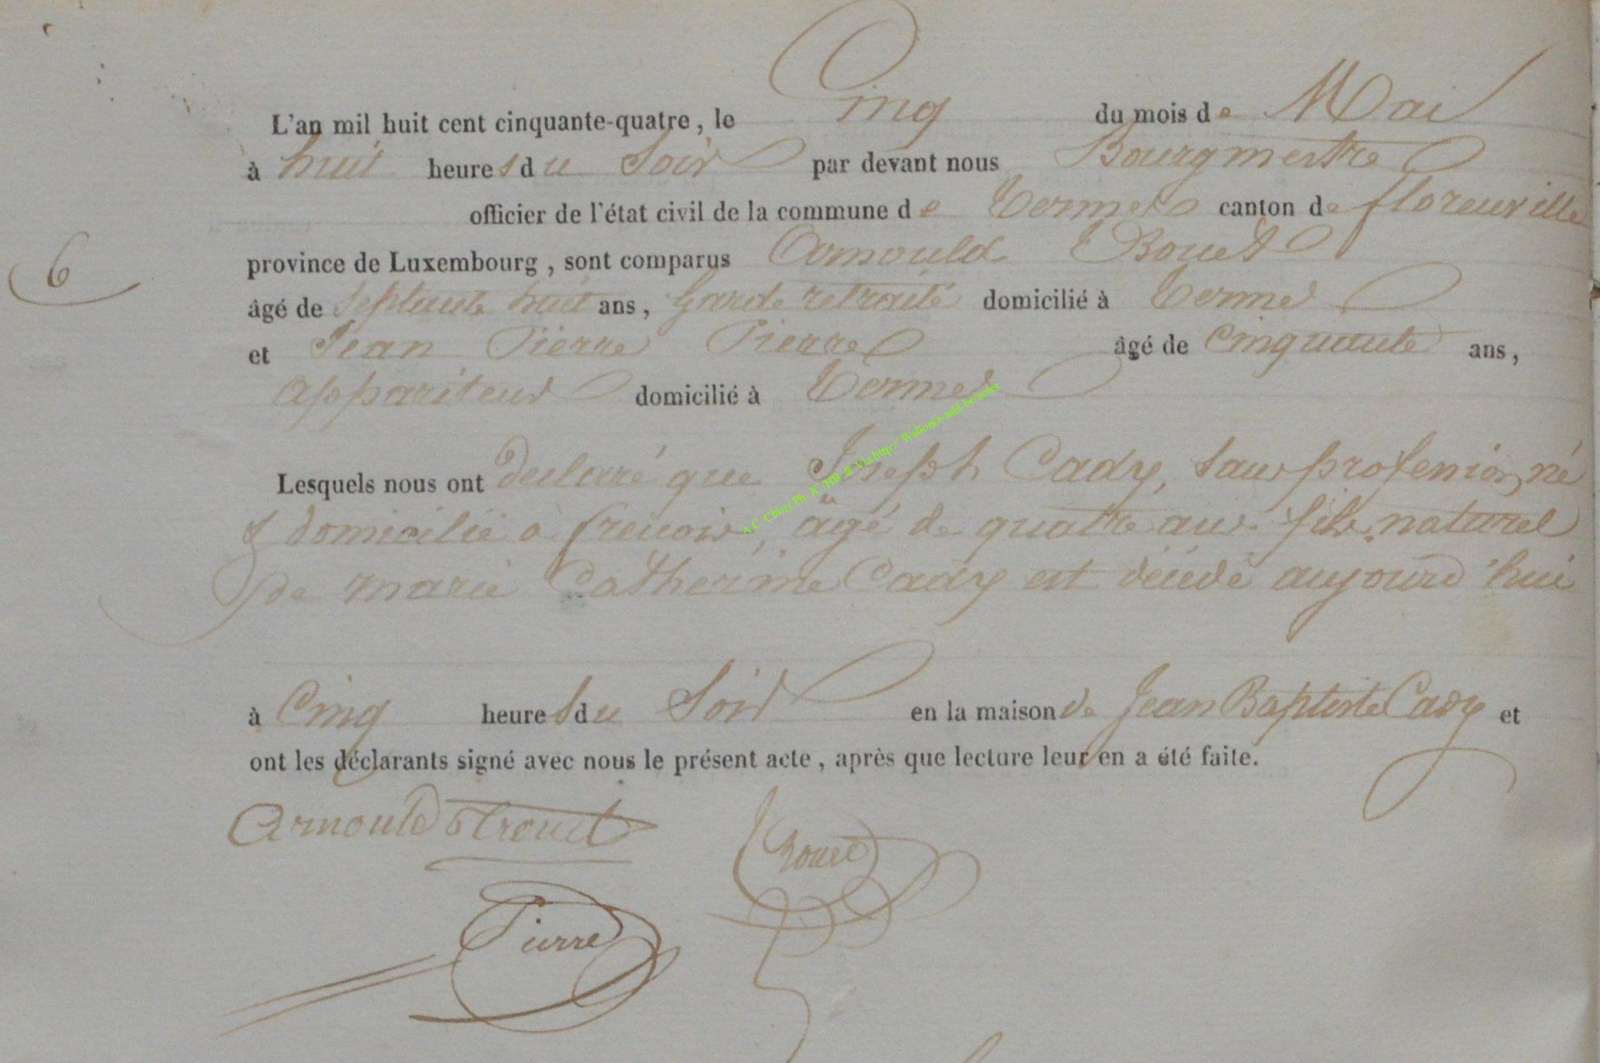 L'an mil huit cent cinquante-quatre, le Cinq du mois de Mai
à huit heures du Soir par devant nous Bourgmestre
officier de l'état civil de la commune de Termes canton de florenville
6
province de Luxembourg, sont comparus Arnould
âgé de septante huit ans, Garde retraité domicilié à Termes
et Jean Pierre Pierre âgé de cinquante ans,
appariteur domicilié à Termes
Lesquels nous ont declaré que Joseph Cady, sans profession, né
& domicilié à frenois, âgé de quatre ans fils naturel
de marie Catherine Cady est décédé aujourd'hui
à Cinq heures du Soir en la maison de Jean Baptiste Cady et
ont les déclarants signé avec nous le présent acte, après que lecture leur en a été faite.
Arnould
Pierre